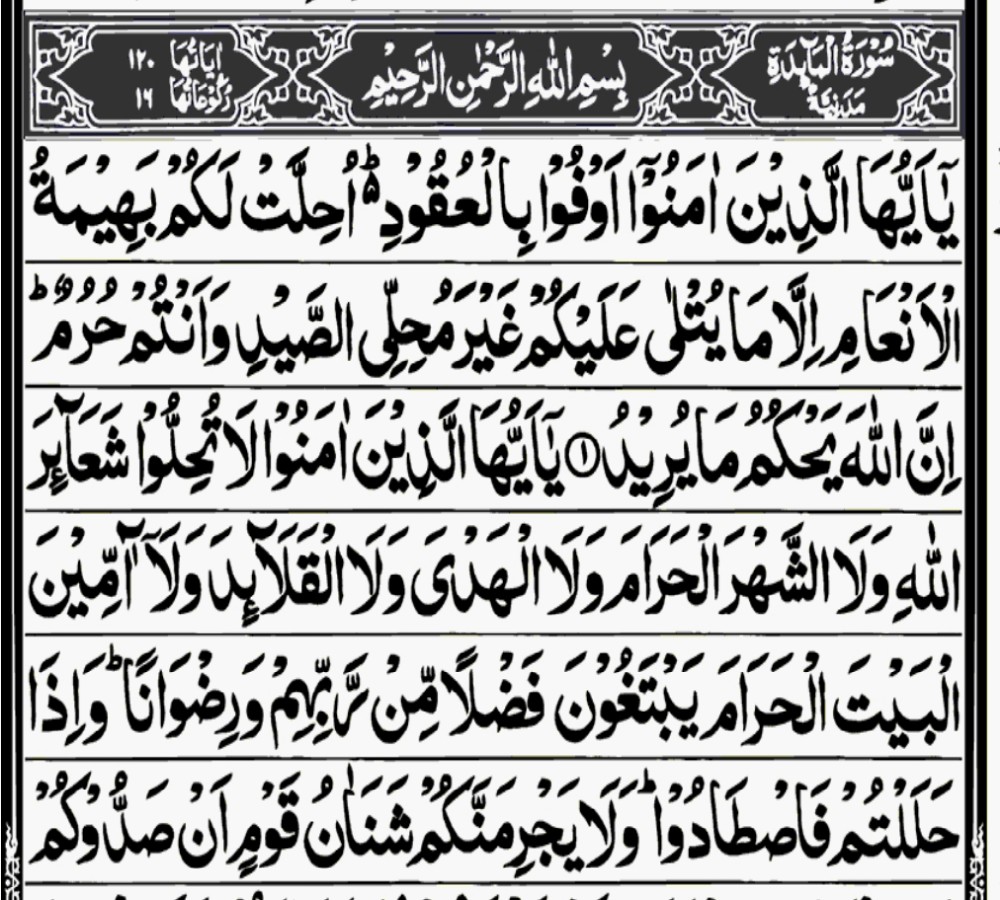 سُوْرَةُ الْمَآئِدَةِ مَدَنِيَّةٌ
بِسْمِ اللّٰهِ الرَّحْمٰنِ الرَّحِيْمِ
اٰيَاتُهَا ١٢٠ رُكُوْعَاتُهَا ١٦
يٰۤاَيُّهَا الَّذِيْنَ اٰمَنُوْۤا اَوْفُوْا بِالْعُقُوْدِ ؕ۬ اُحِلَّتْ لَكُمْ بَهِيْمَةُ
الْاَنْعَامِ اِلَّا مَا يُتْلٰى عَلَيْكُمْ غَيْرَ مُحِلِّى الصَّيْدِ وَاَنْتُمْ حُرُمٌ ؕ
اِنَّ اللّٰهَ يَحْكُمُ مَا يُرِيْدُ ① يٰۤاَيُّهَا الَّذِيْنَ اٰمَنُوْا لَا تُحِلُّوْا شَعَآئِرَ
اللّٰهِ وَلَا الشَّهْرَ الْحَرَامَ وَلَا الْهَدْىَ وَلَا الْقَلَآئِدَ وَلَاۤ آٰمِّيْنَ
الْبَيْتَ الْحَرَامَ يَبْتَغُوْنَ فَضْلًا مِّنْ رَّبِّهِمْ وَرِضْوَانًا ؕ وَاِذَا
حَلَلْتُمْ فَاصْطَادُوْا ؕ وَلَا يَجْرِمَنَّكُمْ شَنَاٰنُ قَوْمٍ اَنْ صَدُّوْكُمْ